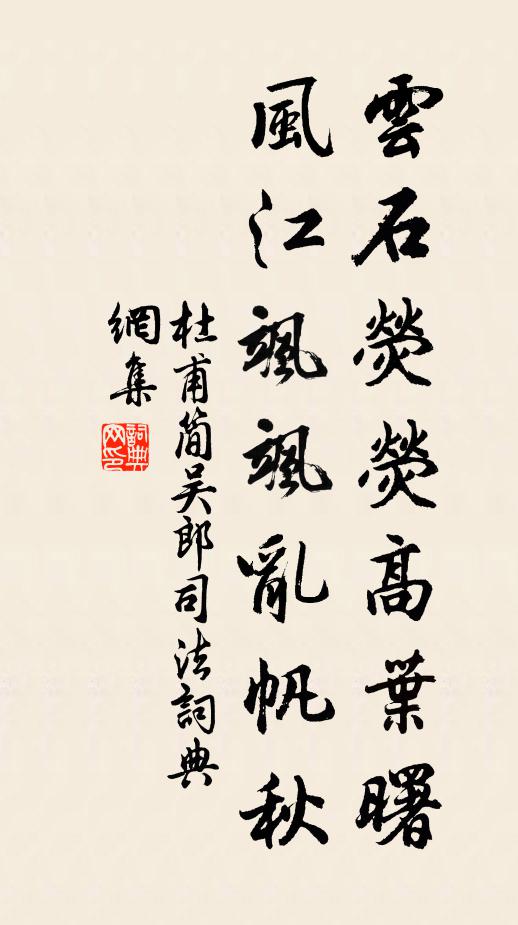 雲石熒熒高葉曙
風江颯颯亂帆秋
杜甫简吴郎司法詞典
網集
詞典
网印